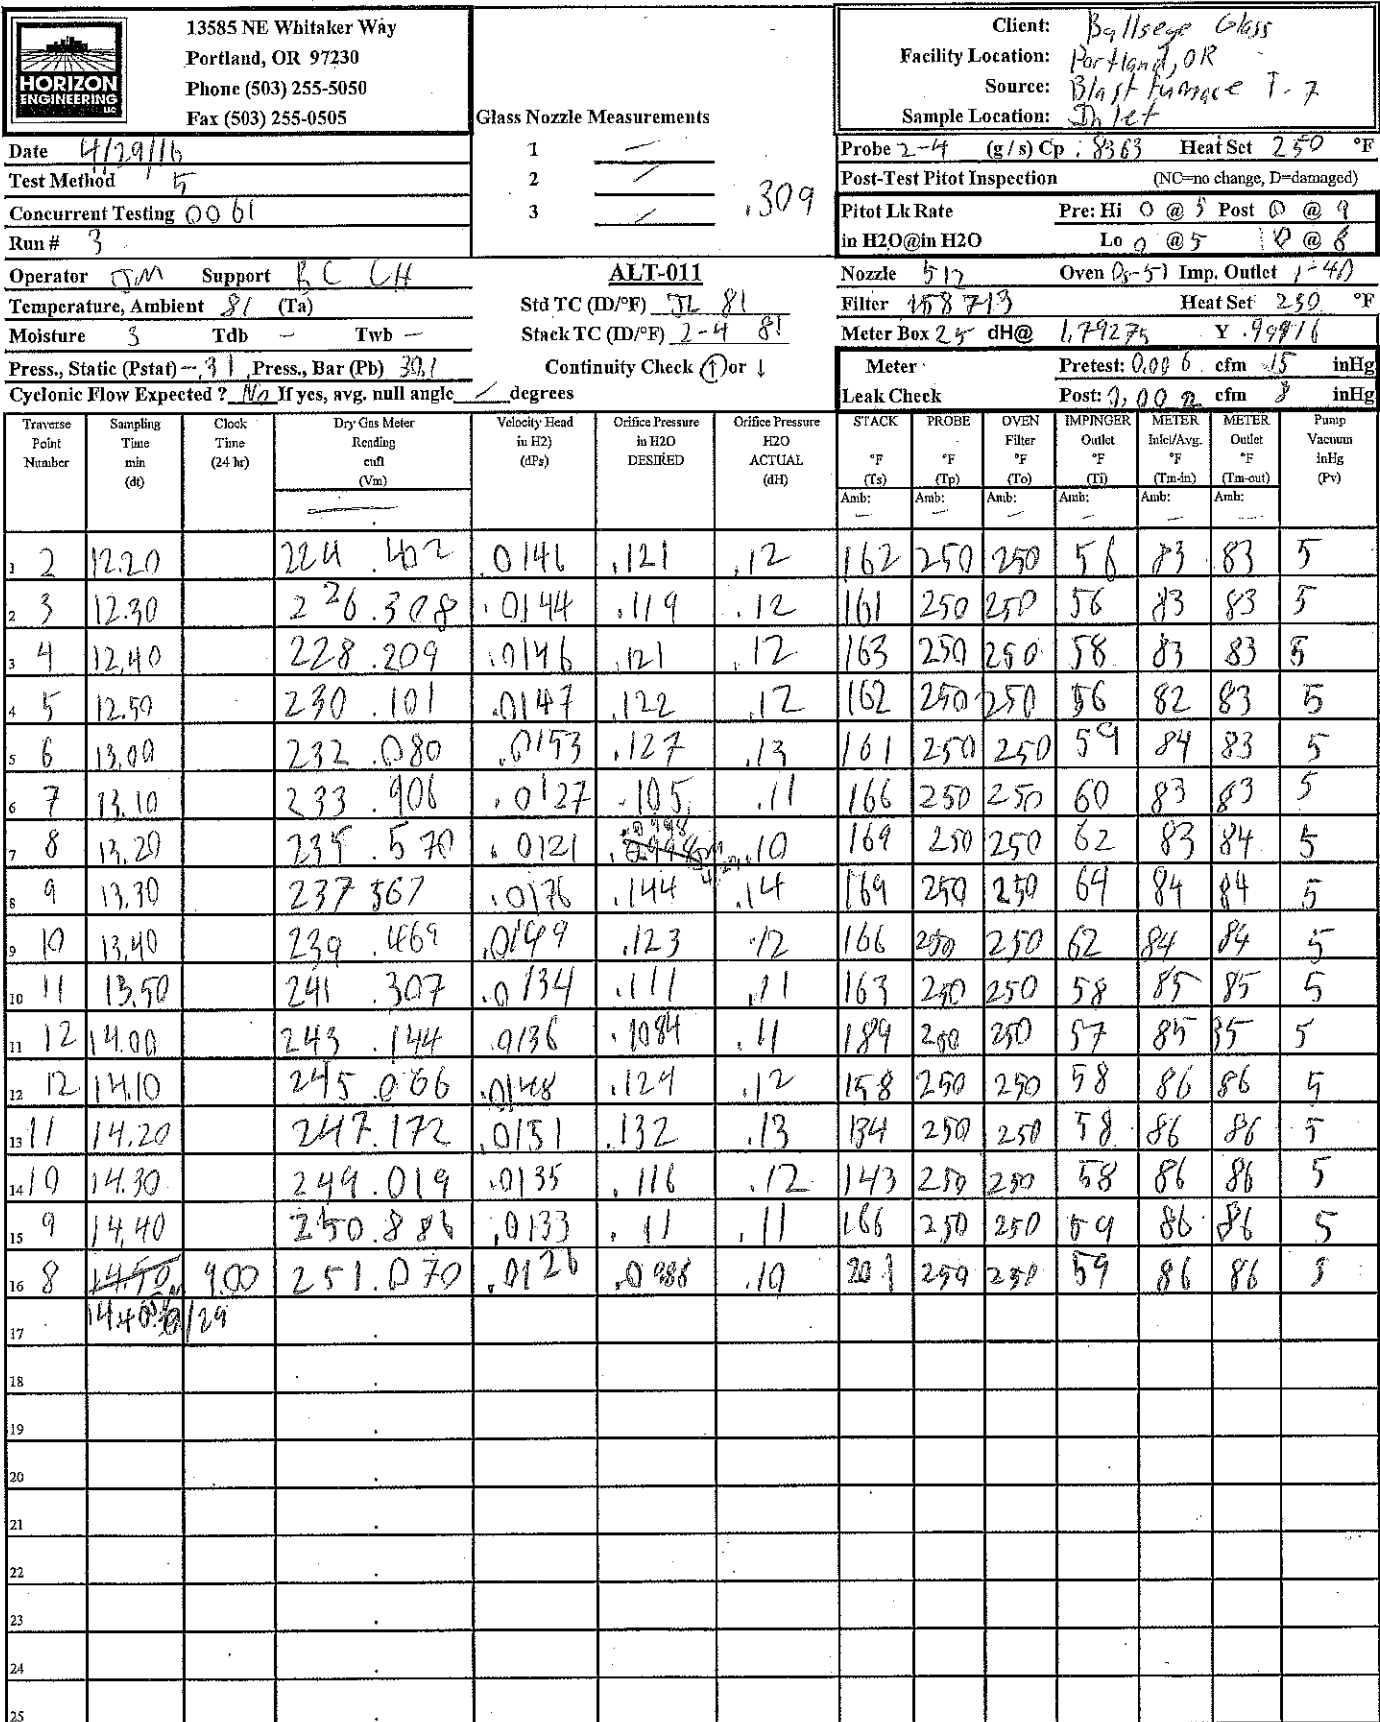 HORIZON
ENGINEERING
LLC
13585 NE Whitaker Way
Portland, OR 97230
Phone (503) 255-5050
Fax (503) 255-0505
Glass Nozzle Measurements
1 —
2 —
3 —
.309
Client: Bullseye Glass
Facility Location: Portland, OR
Source: Blast furnace T-7
Sample Location: Inlet
Date 4/29/16
Test Method 5
Concurrent Testing 0061
Run # 3
Probe 2-4 (g / s) Cp .8363 Heat Set 250 °F
Post-Test Pitot Inspection (NC=no change, D=damaged)
Pitot Lk Rate Pre: Hi 0 @ 5 Post 0 @ 9
in H2O@in H2O Lo 0 @ 5 0 @ 8
Operator JM Support CH
Temperature, Ambient 81 (Ta)
Moisture 3 Tdb — Twb —
Press., Static (Pstat) -.31 Press., Bar (Pb) 30.1
Cyclonic Flow Expected ? No If yes, avg. null angle — degrees
ALT-011
Std TC (ID/°F) JL 81
Stack TC (ID/°F) 2-4 81
Continuity Check ↑ or ↓
Nozzle 512 Oven Imp. Outlet 1-40
Filter 158713 Heat Set 250 °F
Meter Box 25 dH@ 1.79275 Y .99816
Meter Pretest: 0.006 cfm 15 inHg
Leak Check Post: 0.002 cfm 8 inHg
Traverse Point Number
Sampling Time min (dt)
Clock Time (24 hr)
Dry Gas Meter Reading cuft (Vm)
Velocity Head in H2) (dPs)
Orifice Pressure in H2O DESIRED
Orifice Pressure H2O ACTUAL (dH)
STACK °F (Ts) Amb: —
PROBE °F (Tp) Amb: —
OVEN Filter °F (To) Amb: —
IMPINGER Outlet °F (Ti) Amb: —
METER Inlet/Avg. °F (Tm-in) Amb: —
METER Outlet °F (Tm-out) Amb: —
Pump Vacuum inHg (Pv)
1 2 12.20 224 .402 .0146 .121 .12 162 250 250 56 83 83 5
2 3 12.30 226.308 .0144 .119 .12 161 250 250 56 83 83 5
3 4 12.40 228.209 .0146 .121 .12 163 250 250 58 83 83 5
4 5 12.50 230 .101 .0147 .122 .12 162 250 250 56 82 83 5
5 6 13.00 232 .080 .0153 .127 .13 161 250 250 59 84 83 5
6 7 13.10 233 .906 .0127 .105 .11 166 250 250 60 83 83 5
7 8 13.20 235 .570 .0121 .0998 .10 169 250 250 62 83 84 5
8 9 13.30 237 367 .0176 .144 .14 169 250 250 64 84 84 5
9 10 13.40 239 .469 .0149 .123 .12 166 250 250 62 84 84 5
10 11 13.50 241 .307 .0134 .111 .11 163 250 250 58 85 85 5
11 12 14.00 243 .144 .0136 .1084 .11 189 250 250 57 85 85 5
12 12 14.10 245.066 .0148 .124 .12 158 250 250 58 86 86 5
13 11 14.20 247.172 .0151 .132 .13 134 250 250 58 86 86 5
14 10 14.30 249.019 .0135 .116 .12 143 250 250 58 86 86 5
15 9 14.40 250.886 .0133 .11 .11 166 250 250 59 86 86 5
16 8 14.50 9.00 251.070 .0126 .0988 .10 201 250 250 59 86 86 5
17
18
19
20
21
22
23
24
25